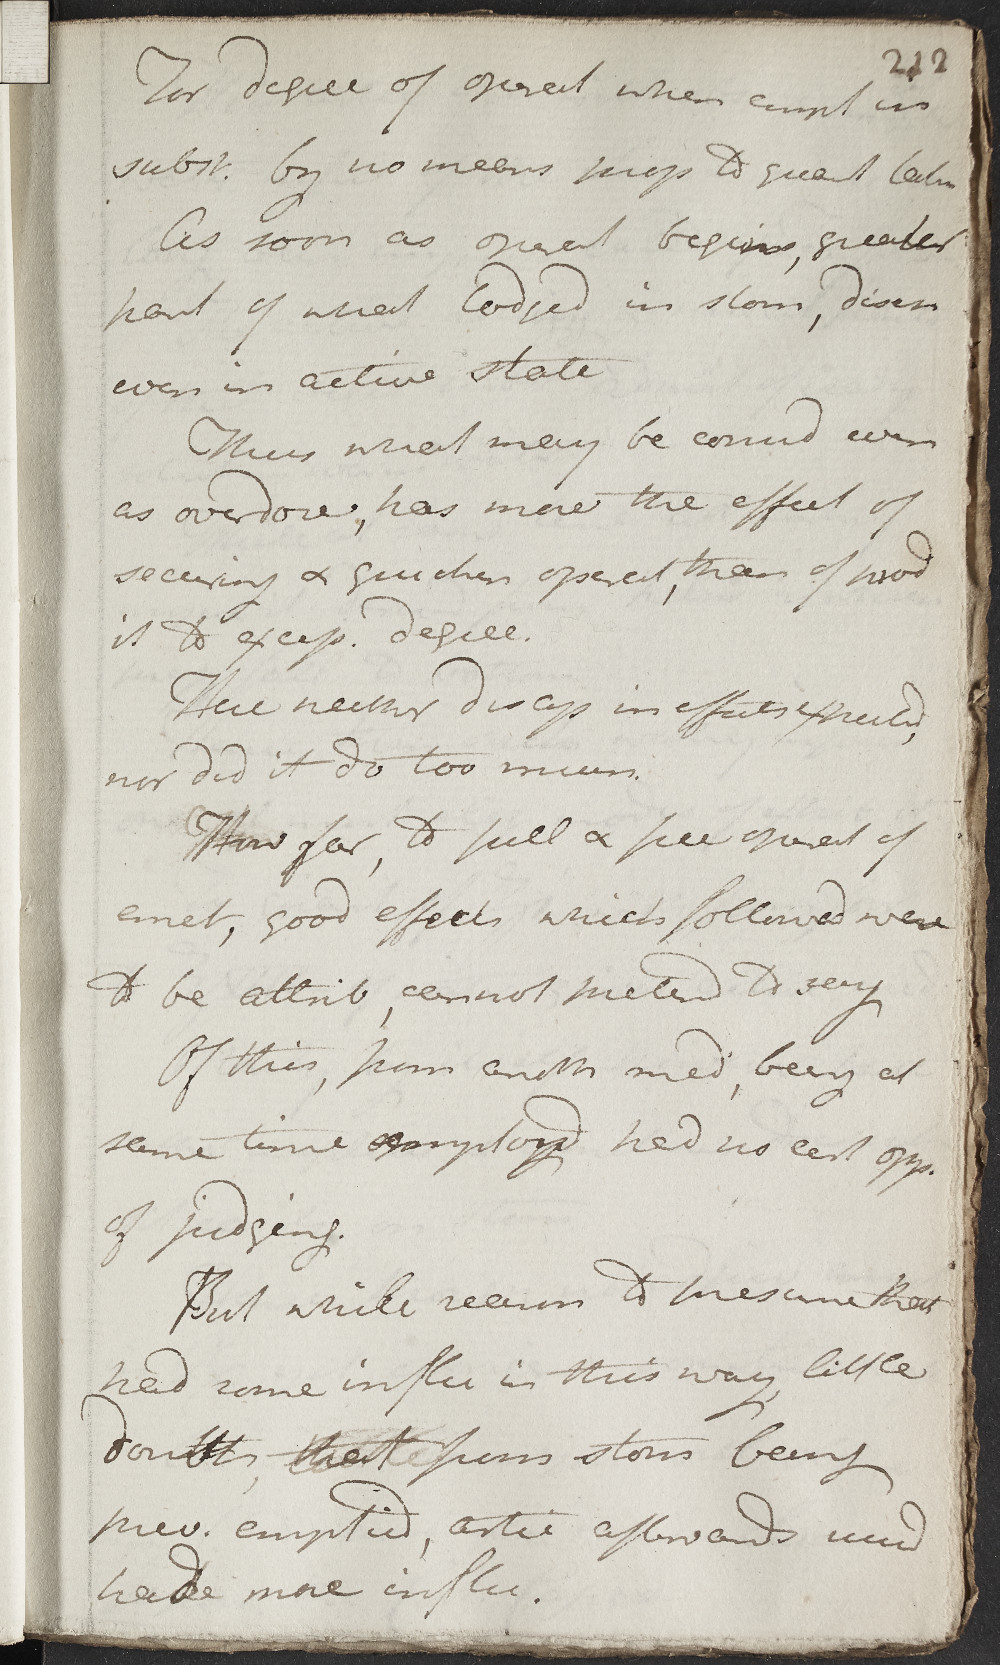 212
For degree of operat when empl in
subst. by no means prop to quant taken
As soon as operat begins, greater
part of what lodged in stom, disch
even in active state
Thus what may be consid even
as overdose, has more the effect of
securing & quicken operat, than of prod
it to excess. degree.
Here neither disap in effects expected,
nor did it do too much.
How far, to full & free operat of
emet, good effects which followed were
to be attrib, cannot pretend to say
Of this, from anoth med, being at
same time employd had no cert opp.
of judging.
But while reason to presume that
had some influ in this way, little
doubt, that from stom being
prev. emptied, artic afterwards used
had more influ.